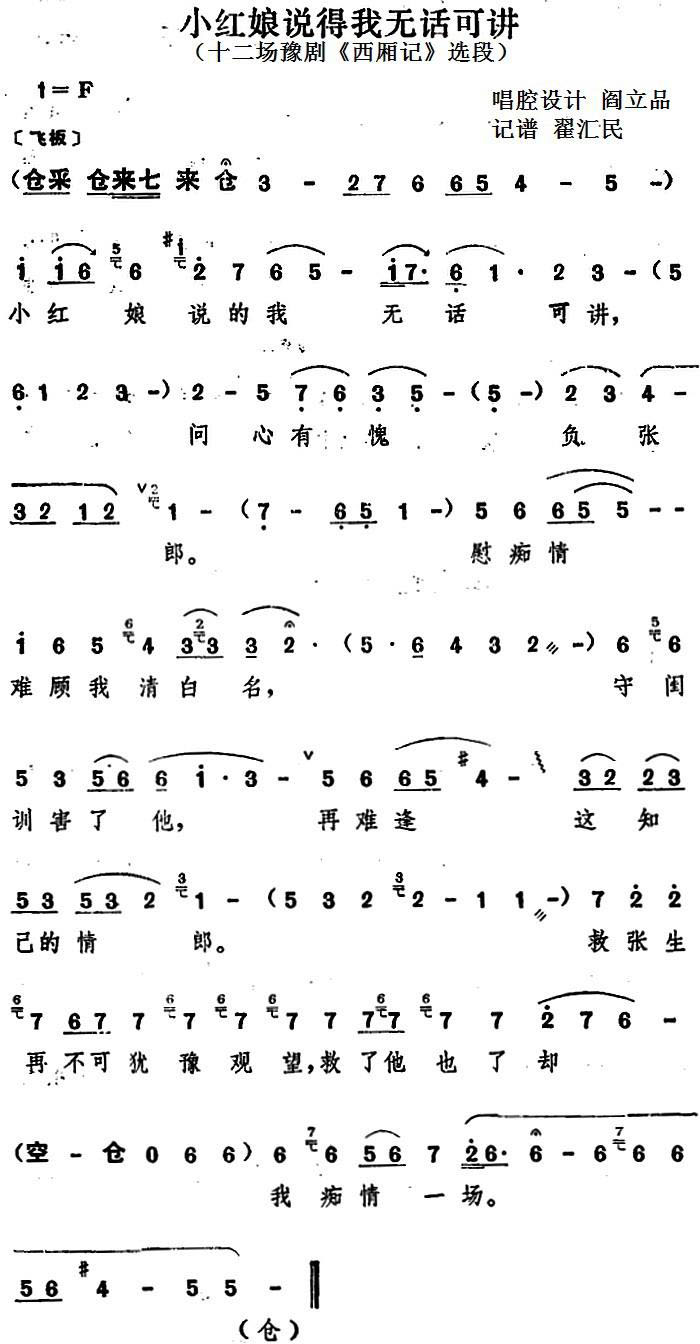 小红娘说得我无话可讲
（十二场豫剧《西厢记》选段）
1=F
唱腔设计 阎立品
〔飞板〕
记谱 翟汇民
（仓采 仓来七 来 仓 3 - 2 7 6 6 5 4 - 5 -）
i i 6 5 6 #i 2 7 6 5 - i 7· 6 1· 2 3 -（5
小红 娘 说的我 无话 可讲，
6 1 2 3 -）2 - 5 7 6 3 5 -（5 -）2 3 4 -
问 心有愧 负 张
3 2 1 2 2 1 -（7 - 6 5 1 -）5 6 6 5 5 - -
郎。 慰痴情
i 6 5 6 4 3 2 3 3 2·（5· 6 4 3 2 -）6 5 6
难顾我 清白 名， 守 闺
5 3 5 6 6 i· 3 - 5 6 6 5 #4 - 3 2 2 3
训害了 他， 再难逢 这 知
5 3 5 3 2 3 1 -（5 3 2 3 2 - 1 1 -）7 2 2
己的情 郎。 救张生
6 7 6 7 7 6 7 6 7 6 7 7 7 6 7 7 2 7 6 -
再 不可 犹 豫 观 望，救了他 也了却
（空 - 仓 0 6 6）6 7 6 5 6 7 2 6· 6 - 6 7 6 6
我 痴情 一 场。
5 6 #4 - 5 5 -
（仓）